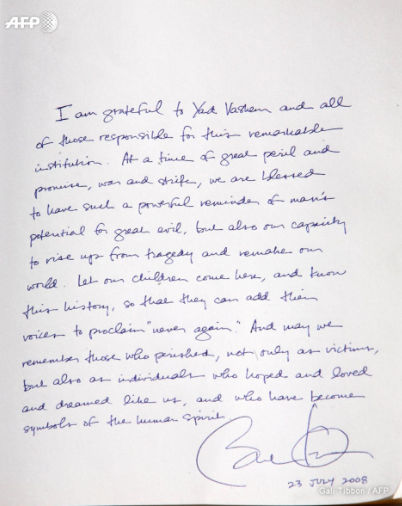 AFP
I am grateful to Yad Vashem and all
of those responsible for this remarkable
institution. At a time of great peril and
promise, war and strife, we are blessed
to have such a powerful reminder of man's
potential for great evil, but also our capacity
to rise up from tragedy and remake our
world. Let our children come here, and know
this history, so that they can add their
voices to proclaim "never again." And may we
remember those who perished, not only as victims,
but also as individuals who hoped and loved
and dreamed like us, and who have become
symbols of the human spirit.
23 JULY 2008
Gali Tibbon / AFP